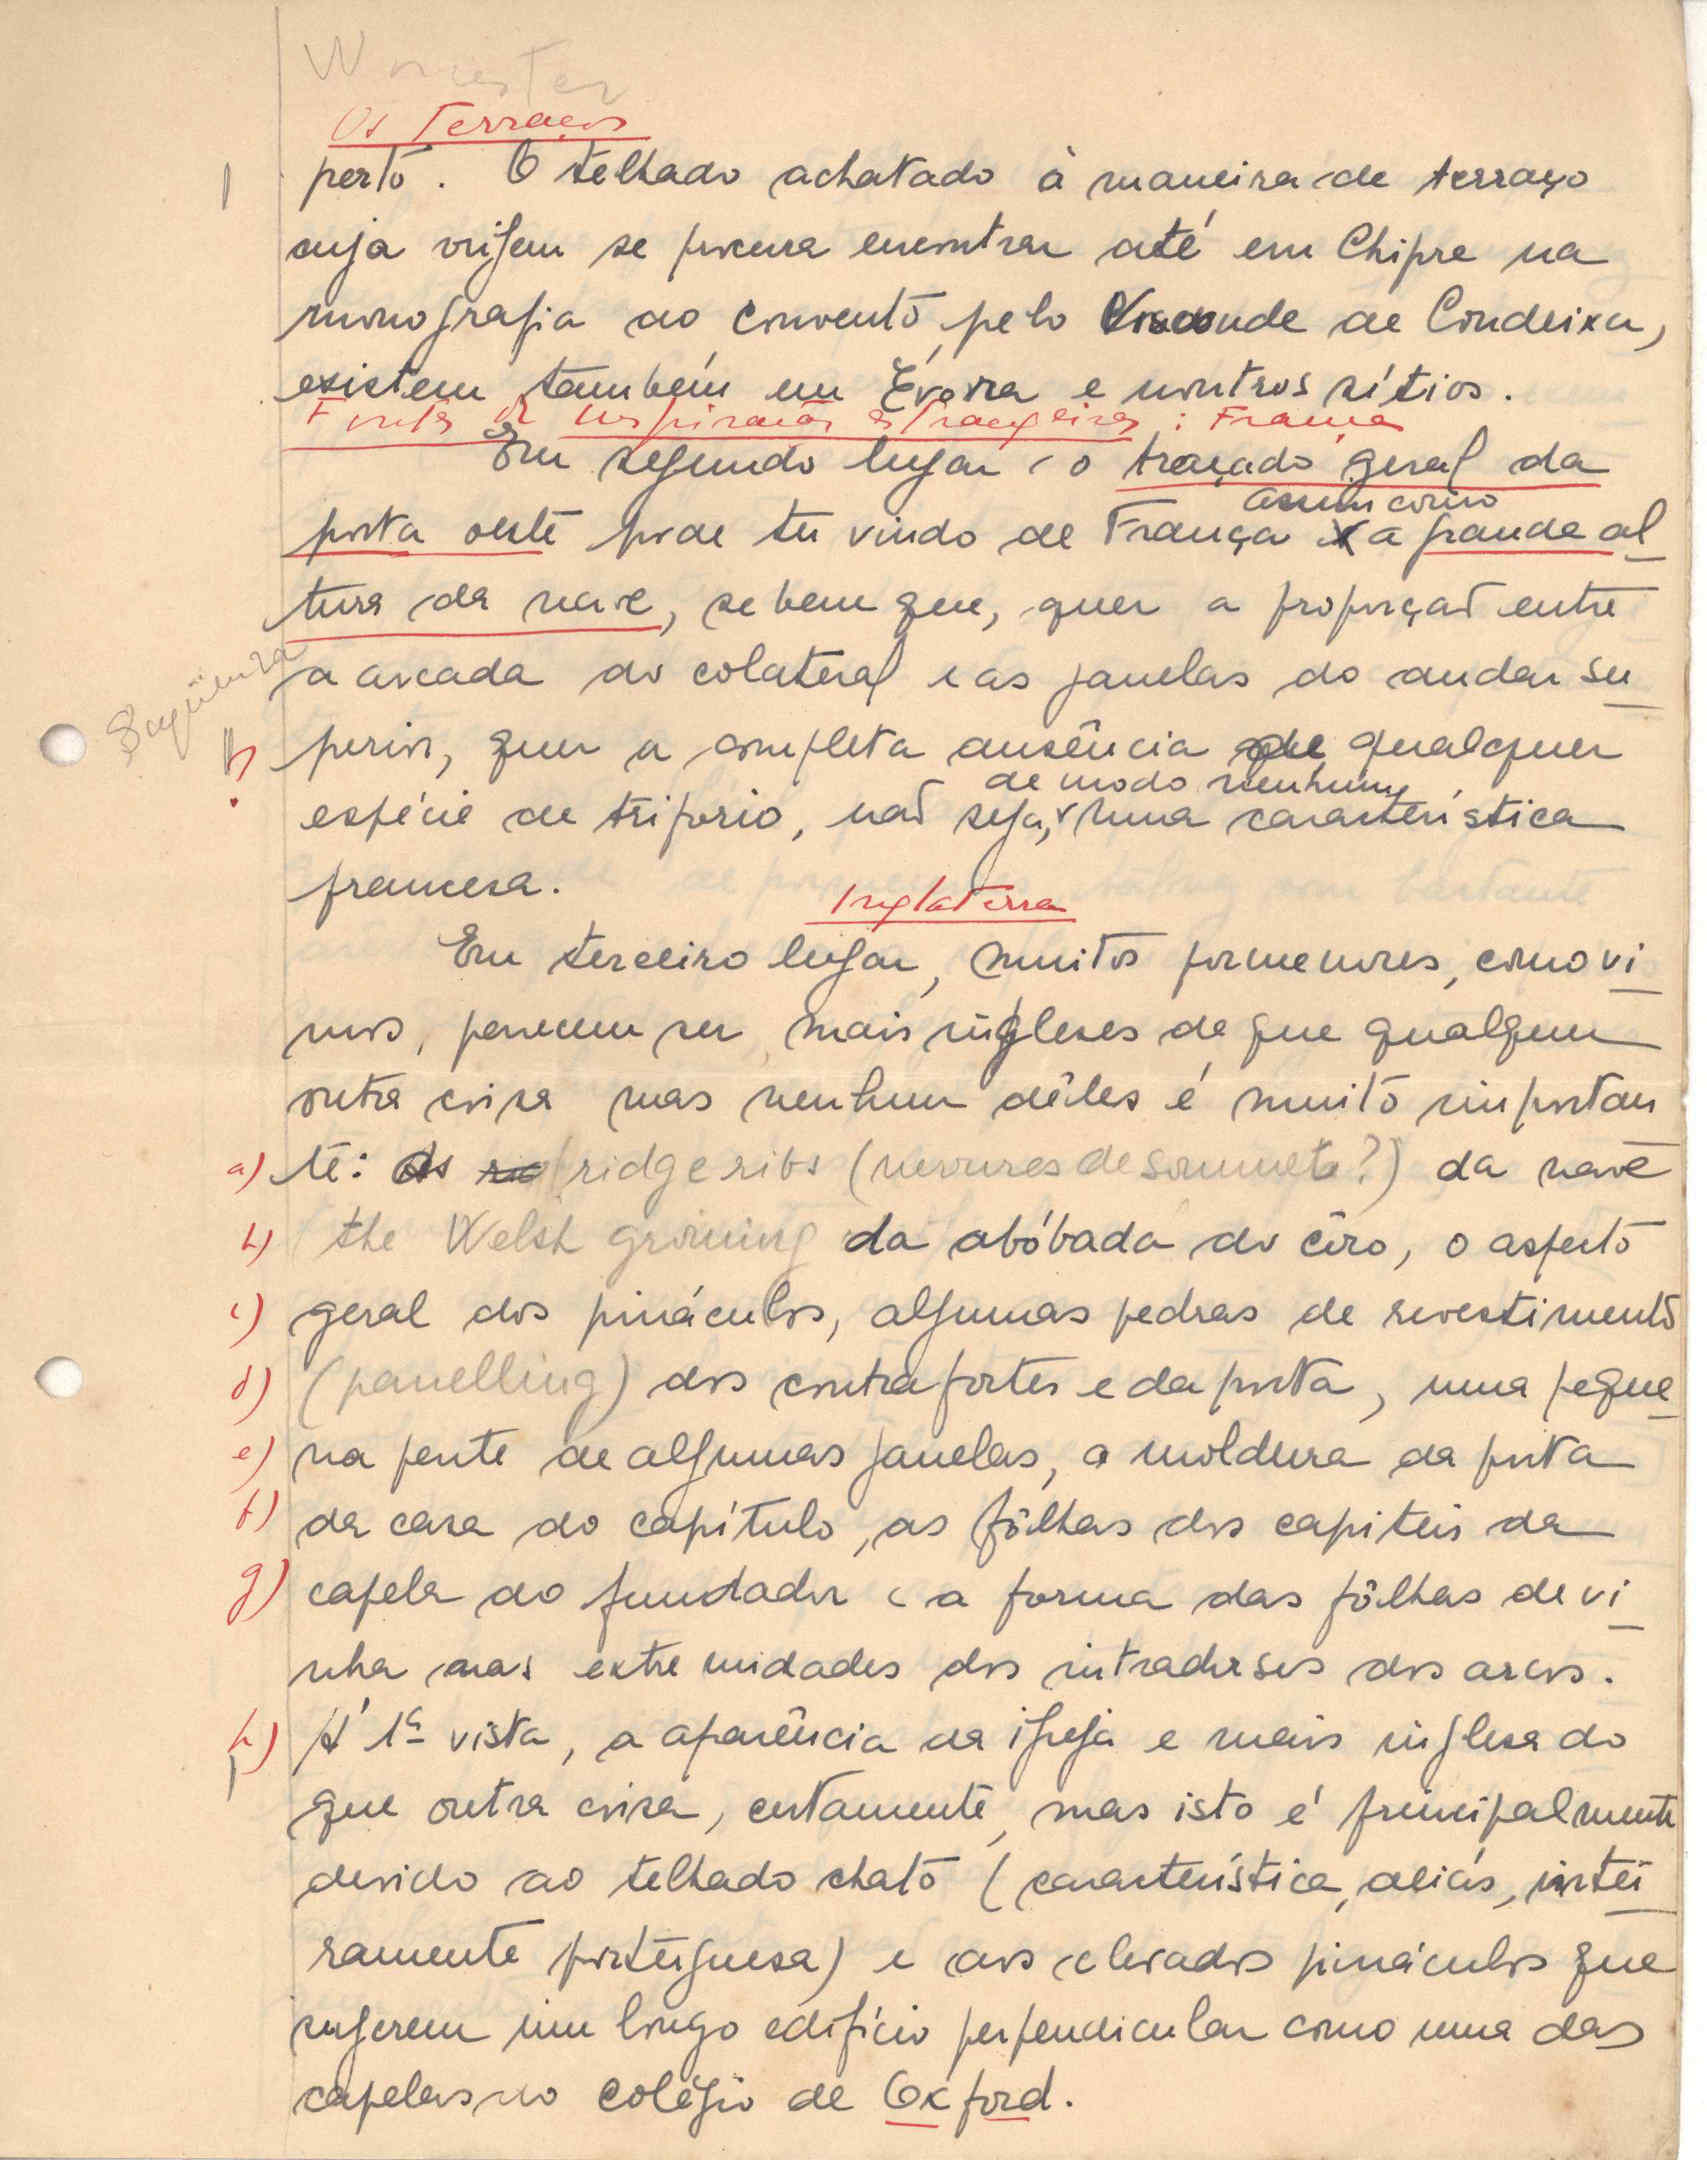 Worcester
Os Terraços
perto. O telhado achatado à maneira de terraço
cuja origem se procura encontrar até em Chipre na
monografia do convento pelo Visconde de Condeixa,
existem também em Évora e noutros sítios.
Fontes de inspiração estrangeiras: França
Em segundo lugar, o traçado geral da
assim como
porta oeste pode ter vindo de França a grande al
tura da nave, se bem que, quer a proporção entre
a arcada do colateral e as janelas do andar su
perior, quer a completa ausência de qualquer
de modo nenhum
espécie de triforio, não seja, uma característica
francesa.
Inglaterra
Em terceiro lugar, muitos pormenores, como vi
mos, parecem ser mais ingleses do que qualquer
outra coisa mas nenhum dêles é muito importan
a) te: os ridge ribs (nervures de sommets?) da nave
b) the Welsh groining da abóbada do côro, o aspecto
c) geral dos pináculos, algumas pedras de revestimento
d) (panelling) dos contrafortes e da porta, uma peque
e) na parte de algumas janelas, a moldura da porta
f) da casa do capítulo, as fôlhas dos capiteis da
g) capela do fundador e a forma das fôlhas de vi
nha nas extremidades dos intradorses dos arcos.
h) Á 1ª vista, a aparência da igreja é mais inglesa do
que outra coisa, certamente, mas isto é principalmente
devido ao telhado chato (característica, aliás, intei
ramente portuguesa) e aos elevados pináculos que
sugerem um longo edifício perpendicular como uma das
capelas no colégio de Oxford.